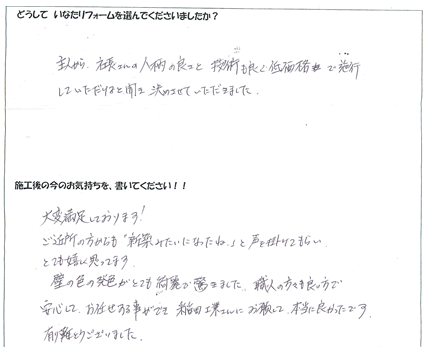 どうして いなたリフォームを選んでくださいましたか？
主人から、社長さんの人柄の良さと 技術も良く低価格 で施行
していただけると聞き 決めさせていただきました。
施工後の今のお気持ちを、書いてください！！
大変満足しております！
ご近所の方からも「新築みたいになったね。」と声を掛けてもらい
とても嬉しく思ってます。
壁の色の発色がとても綺麗で驚きました。職人の方々も良い方で
安心して、お任せする事ができ 稲田工業さんに お願いして、本当に良かったです
有難とうございました。